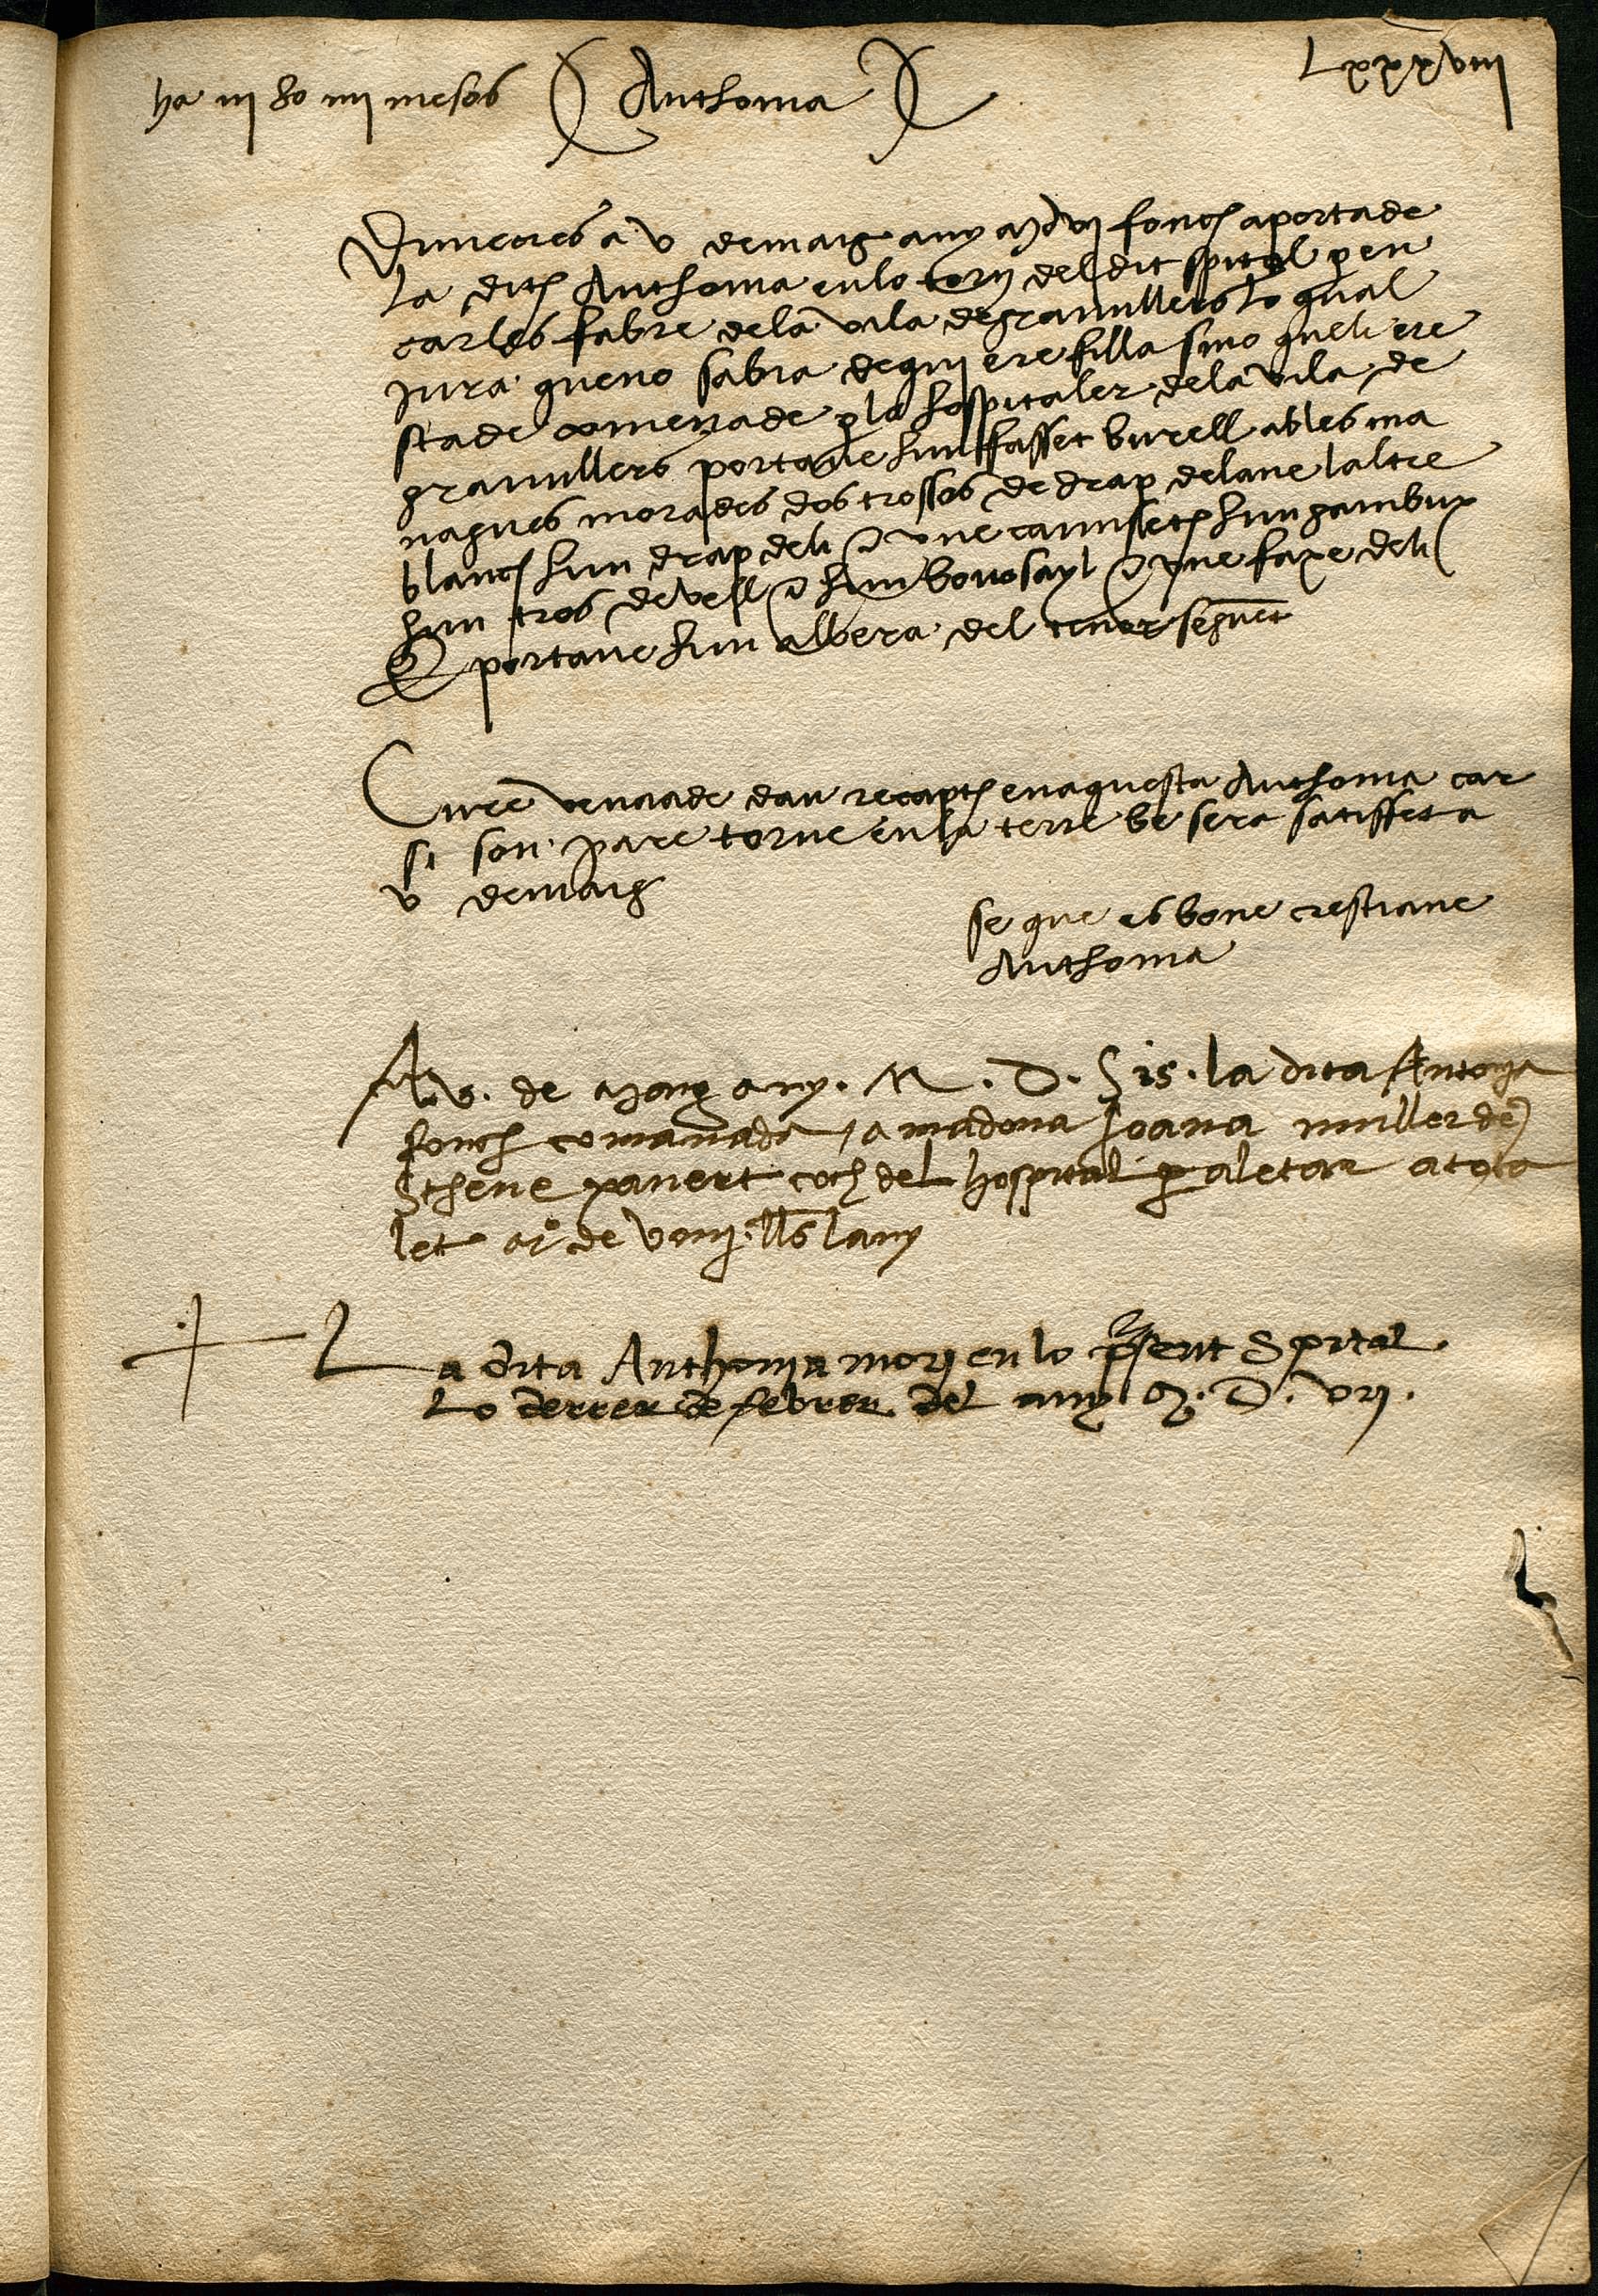 Lxxxviii
ha iij ho iiij mesos Anthonia
Dimecres a v de maig any Mdvj fonch aportade
la dita Anthonia en lo torn del dit spital per en
carles fabre de la vila de granullers lo qual
jura que no sabia de qui ere filla sino que li ere
stade comenade per lo hospitaler de la vila de
granullers portave hun fasset burell ab les ma
nagues morades dos trossos de drap de lane laltre
blanch hun drap de li e vne camiseta hun gambux
hun tros de vell e hun bonosayl e vne faxe de li
E portave hun albera del tenor seguent
Cure venade dau recapte en aquesta Anthonia car
si son pare torne en la terre be sera satisfet a
v de maig
se que es bone crestiane
Anthonia
A v. de Maig any. M. D. Sis. la dita Antonia
fonch comanada a madona Joana muller de
Stheve panert coch del hospital per aletar a tota
let a rº de viiij. lls lany
La dita Anthonia mori en lo present Spital
Lo derrer de febrer del any M. D. vij.